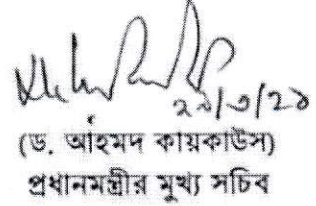 ২৯/৩/২১
(ড. আহমদ কায়কাউস)
প্রধানমন্ত্রীর মুখ্য সচিব